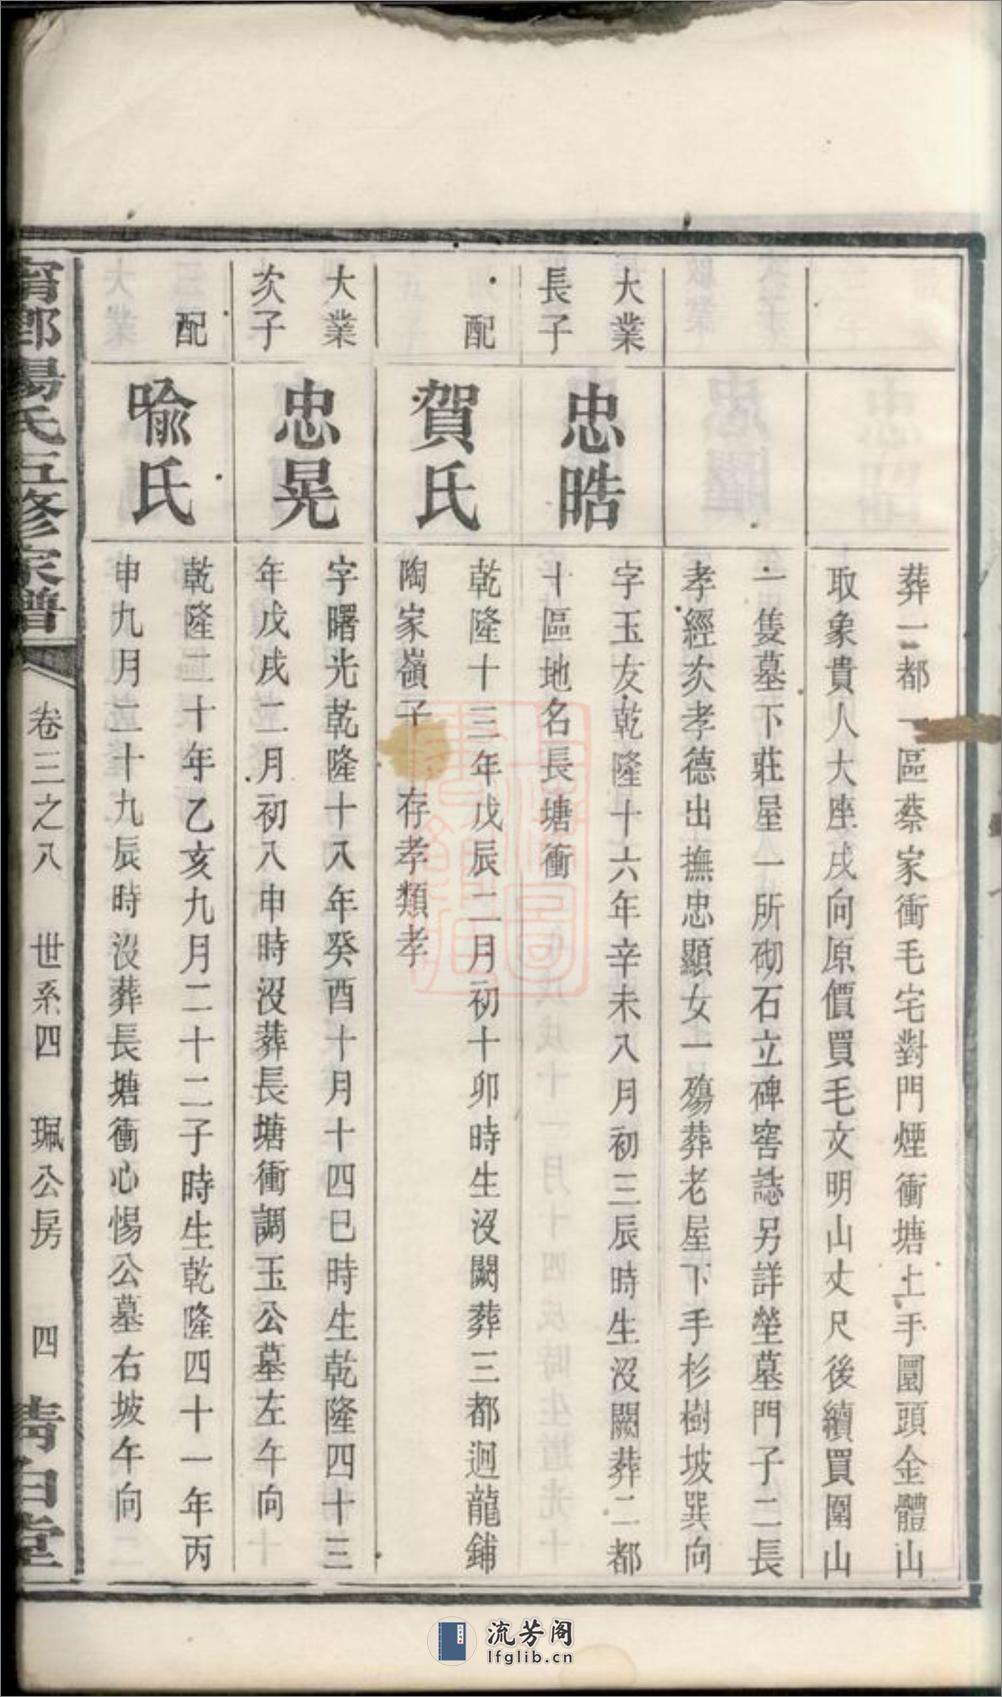 葬一都一區蔡家衝毛宅對門煙衝塘上手圍頭金體山
取象貴人大座戌向原價買毛文明山丈尺後續買圍山
一隻墓下莊屋一所砌石立碑窖誌另詳塋墓門子二長
孝經次孝德出撫忠顯女一殤葬老屋下手杉樹坡巽向
大業
長子
忠晧
字玉友乾隆十六年辛未八月初三辰時生沒闕葬二都
十區地名長塘衝
配
賀氏
乾隆十三年戊辰二月初十卯時生沒闕葬三都迴龍鋪
陶家嶺子一存孝類孝
大業
次子
忠晃
字曙光乾隆十八年癸酉十月十四巳時生乾隆四十三
年戊戌二月初八申時沒葬長塘衝調玉公墓左午向
配
喩氏
乾隆二十年乙亥九月二十二子時生乾隆四十一年丙
申九月二十九辰時沒葬長塘衝心惕公墓右坡午向
甯鄉楊氏五修家譜 卷三之八 世系四 珮公房 四 清白堂
流芳阁
lfglib.cn